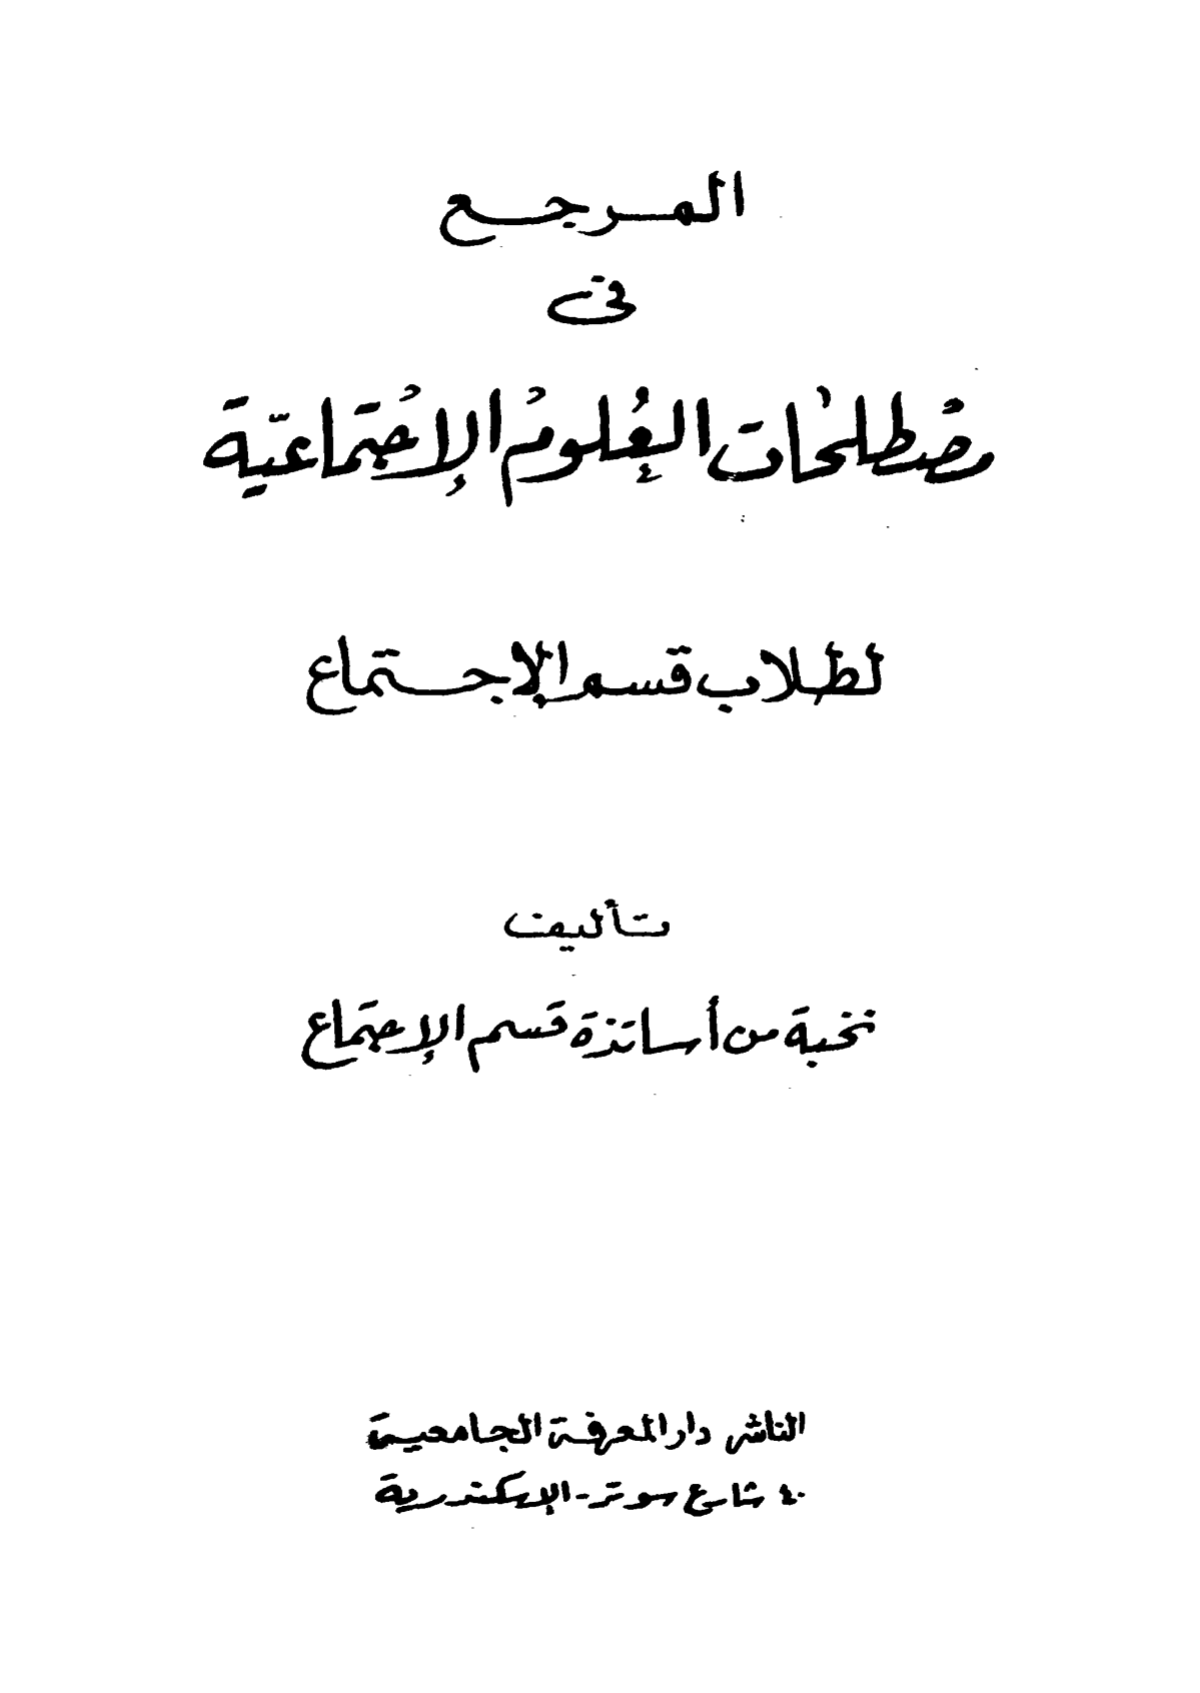 المرجع
فى
مصطلحات العُلومُ الإجتماعيّة
لطلاب قسم الإجتماع
تأليف
نخبة من أساتذة قسم الإجتماع
الناشر دار المعرفة الجامعية
٤٠ شارع سوتر - الإسكندرية